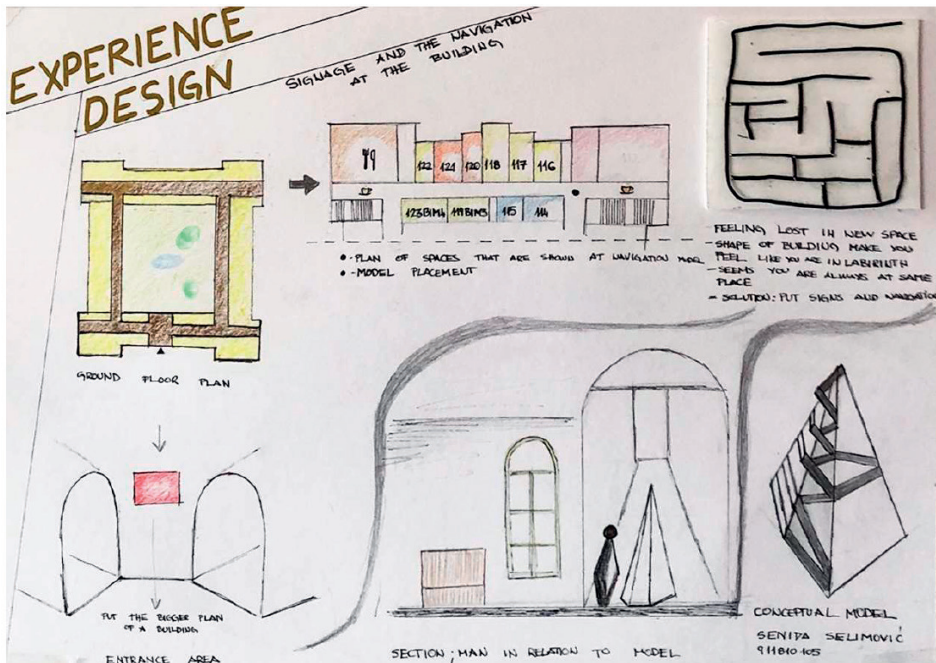 EXPERIENCE
DESIGN
SIGNAGE AND THE NAVIGATION
AT THE BUILDING
122
121
120
118
117
116
123BIM4
119BIM3
115
114
• - PLAN OF SPACES THAT ARE SHOWN AT NAVIGATION MODEL
• - MODEL PLACEMENT
- FEELING LOST IN NEW SPACE
- SHAPE OF BUILDING MAKE YOU
FEEL LIKE YOU ARE IN LABIRINTH
- SEEMS YOU ARE ALWAYS AT SAME
PLACE
- SOLUTION: PUT SIGNS AND NAVIGATION
GROUND FLOOR PLAN
PUT THE BIGGER PLAN
OF A BUILDING
ENTRANCE AREA
SECTION; MAN IN RELATION TO MODEL
CONCEPTUAL MODEL
SENIDA SELIMOVIĆ
911810105